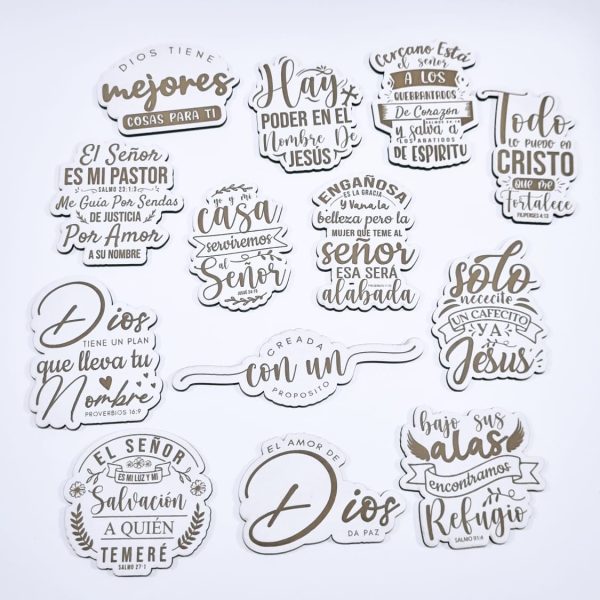 DIOS TIENE
mejores
COSAS PARA TI
Hay
PODER EN EL
Nombre De
JESÚS
Cercano Está
el señor
A LOS
QUEBRANTADOS
De Corazón
SALMOS 34:18
y salva a
LOS ABATIDOS
DE ESPIRITU
Todo
LO PUEDO EN
CRISTO
QUE ME
Fortalece
FILIPENSES 4:13
El Señor
ES MI PASTOR
SALMO 23:1:3
Me Guía Por Sendas
DE JUSTICIA
Por Amor
A SU NOMBRE
yo y mi
CASA
serviremos
al
Señor
JOSUE 24:15
ENGAÑOSA
ES LA GRACIA
y Vana la
belleza pero la
MUJER QUE TEME AL
señor
ESA SERÁ
alabada
solo
nececito
UN CAFECITO
YA
Jesus
Dios
TIENE UN PLAN
que lleva tu
Nombre
PROVERBIOS 16:9
CREADA
con un
PROPOSITO
EL SEÑOR
ES MI LUZ Y MI
Salvación
A QUIÉN
TEMERÉ
SALMO 27:1
EL AMOR DE
Dios
DA PAZ
bajo sus
alas
encontramos
Refugio
SALMO 91:4